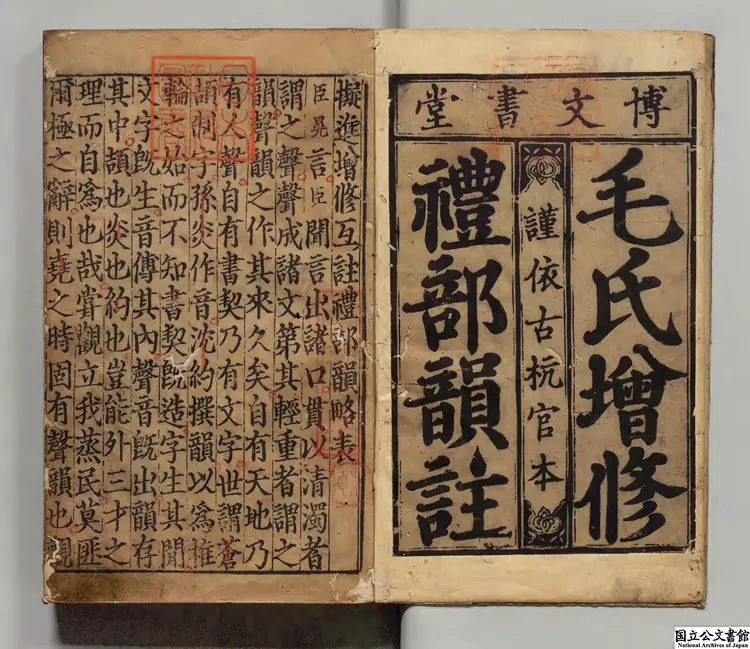 博文書堂
毛氏增修
謹依古杭官本
禮部韻註
擬進增修互註禮部韻略表
臣晃言臣聞言出諸口貫以清濁者
謂之聲聲成諸文第其輕重者謂之
韻聲韻之作其來久矣自有天地乃
有人聲自有書契乃有文字世謂蒼
頡制字孫炎作音沈約撰韻以爲椎
輪之始而不知書契旣造字生其間
文字旣生音傳其內聲音旣出韻存
其中頡也炎也約也豈能外三才之
理而自爲也哉嘗觀立我蒸民莫匪
爾極之辭則堯之時固有聲韻也觀
国立公文書館
National Archives of Japan